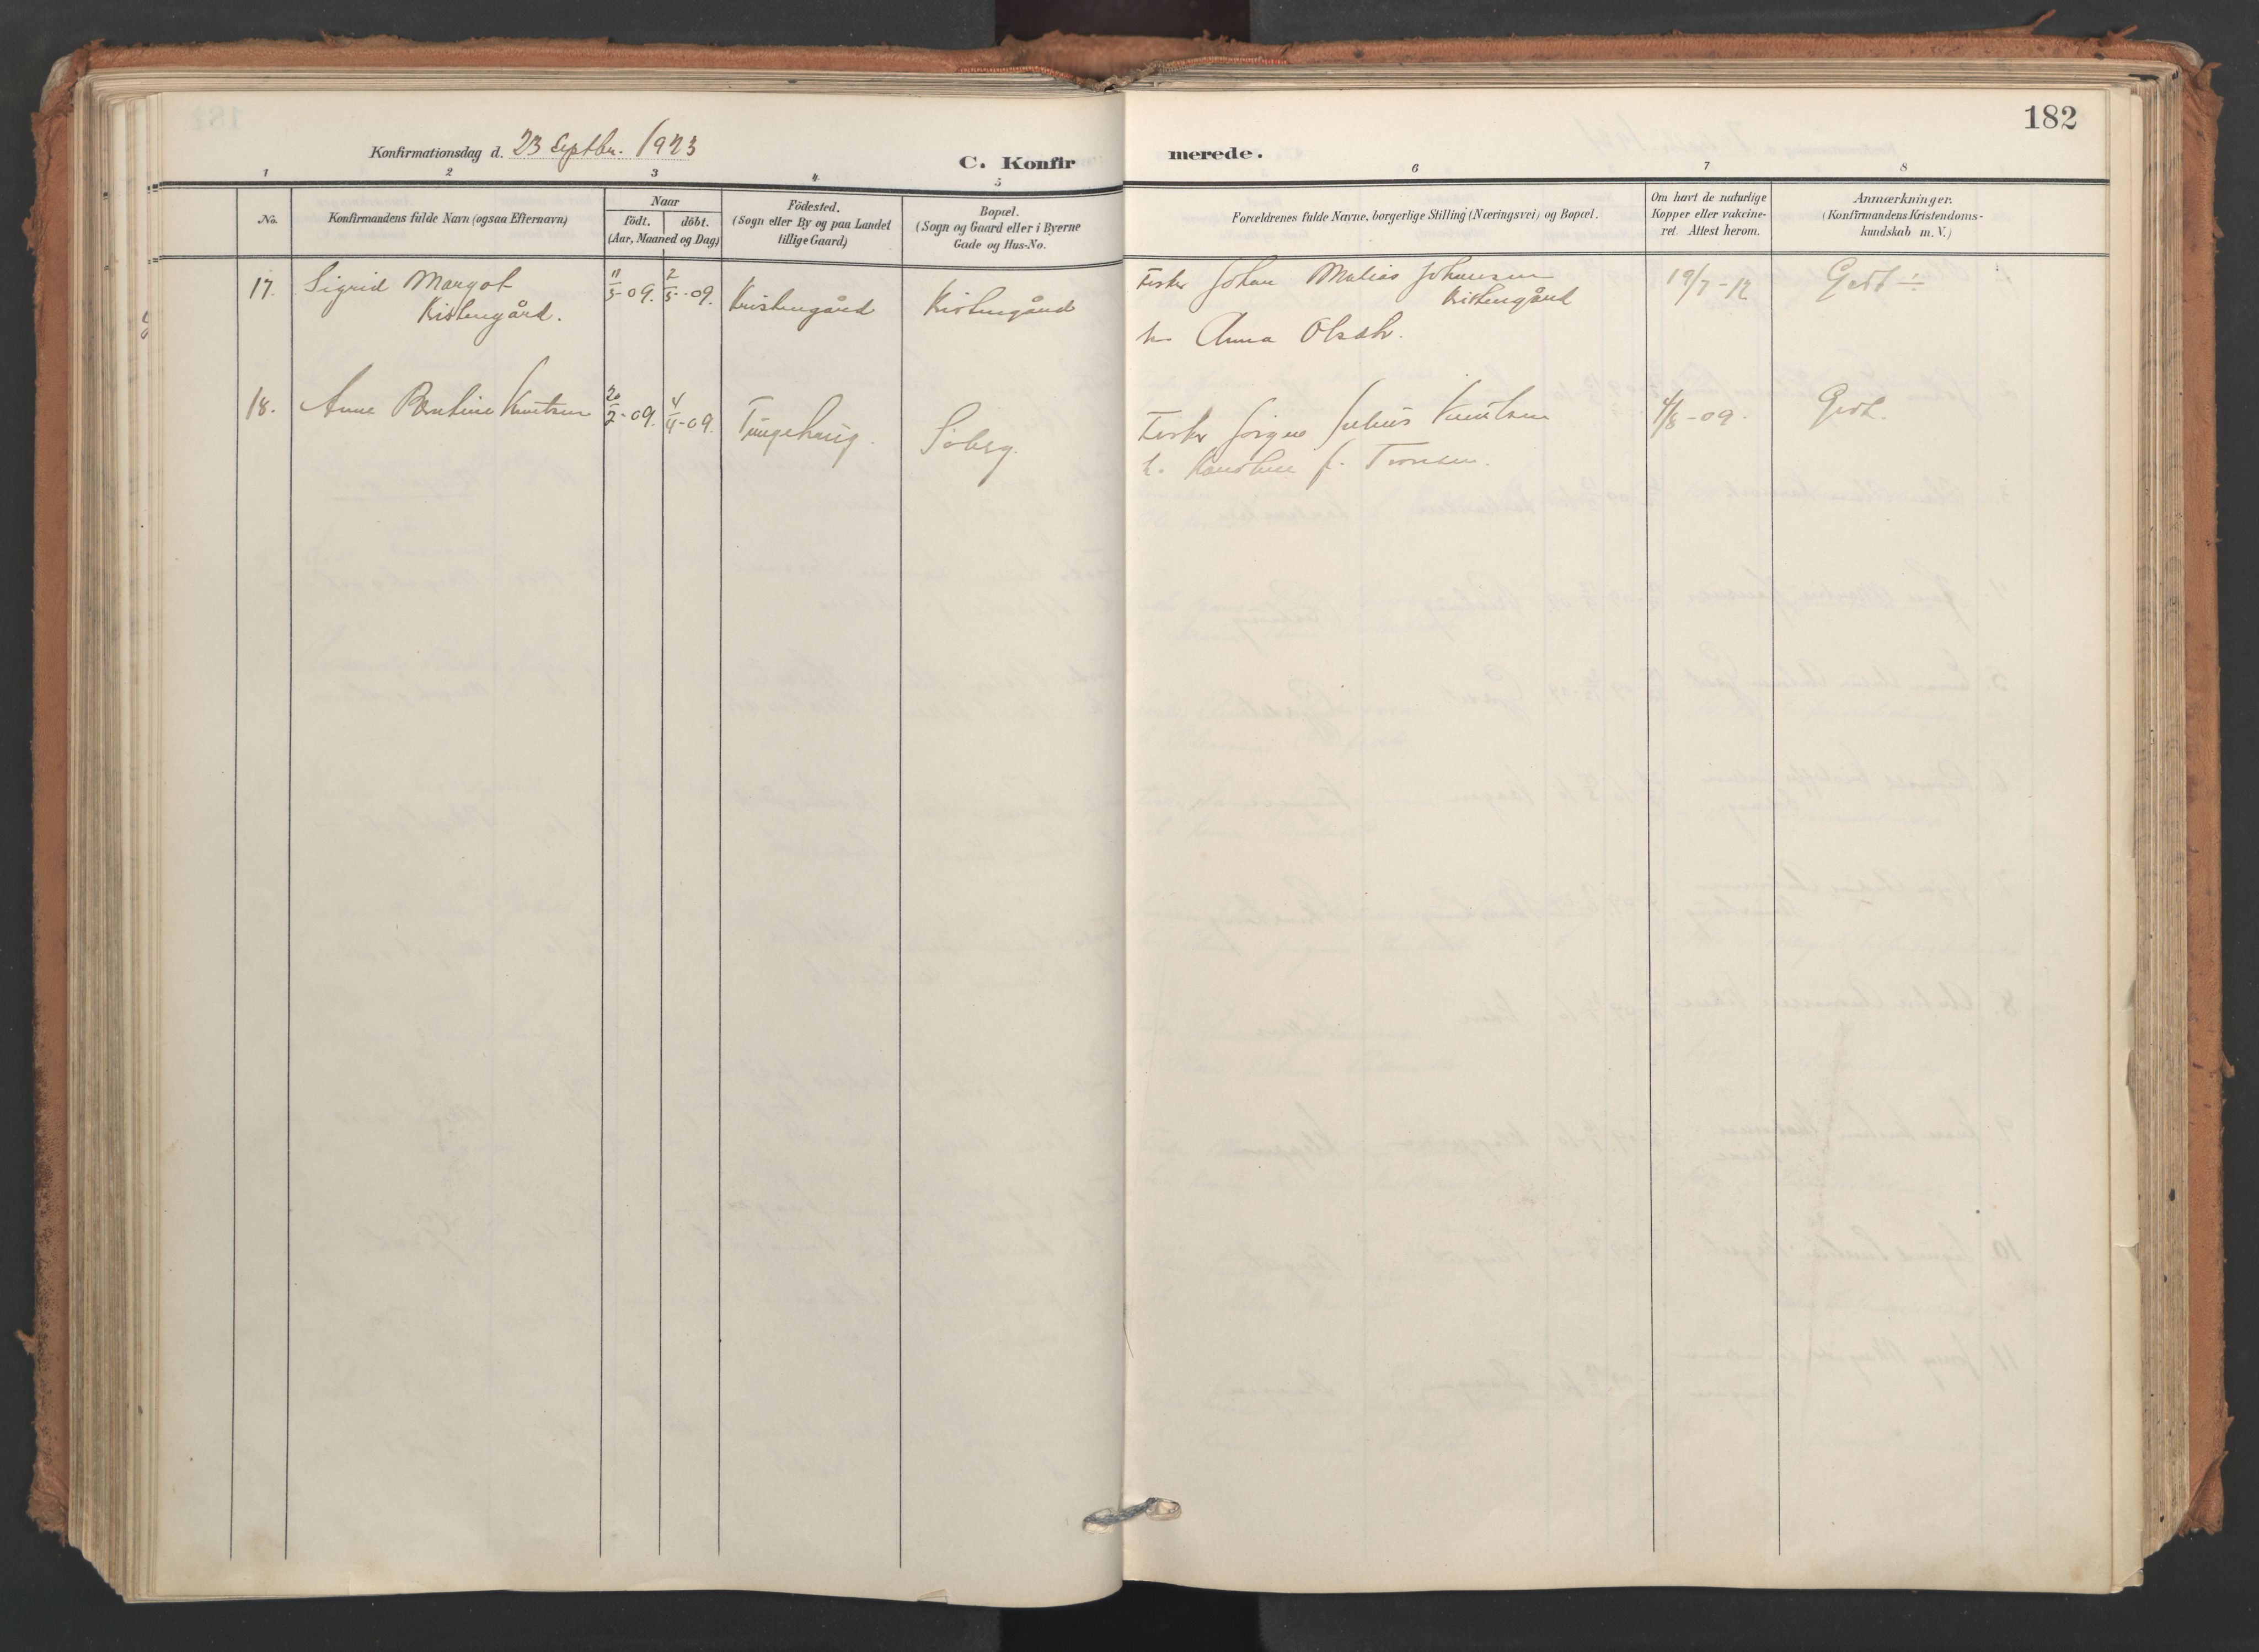 182
Konfirmationsdag d. 23 Septbr. 1923
C. Konfirmerede.
1 2 3 4 5 6 7 8
No.
Konfirmandens fulde Navn (ogsaa Efternavn)
Naar
födt. döbt.
(Aar, Maaned og Dag)
Födested.
(Sogn eller By og paa Landet
tillige Gaard)
Bopæl.
(Sogn og Gaard eller i Byerne
Gade og Hus-No.
Forældrenes fulde Navne, borgerlige Stilling (Næringsvei) og Bopæl.
Om havt de naturlige
Kopper eller vakcine-
ret. Attest herom.
Anmærkninger.
(Konfirmandens Kristendoms-
kundskab m. V.)
17. Sigrid Margot 11/3-09. 2/5-09. Kristengård Kistengård Fisker Johan Matias Johansen 19/7-12 Godt ÷
Kistengård. Kistengård
h. Anna Olsdtr.
18. Anne Bentine Knutsen 20/2-09. 4/4-09. Tungehaug. Söberg. Fisker Jörgen Julius Knutsen 4/8-09. Godt.
h. f.